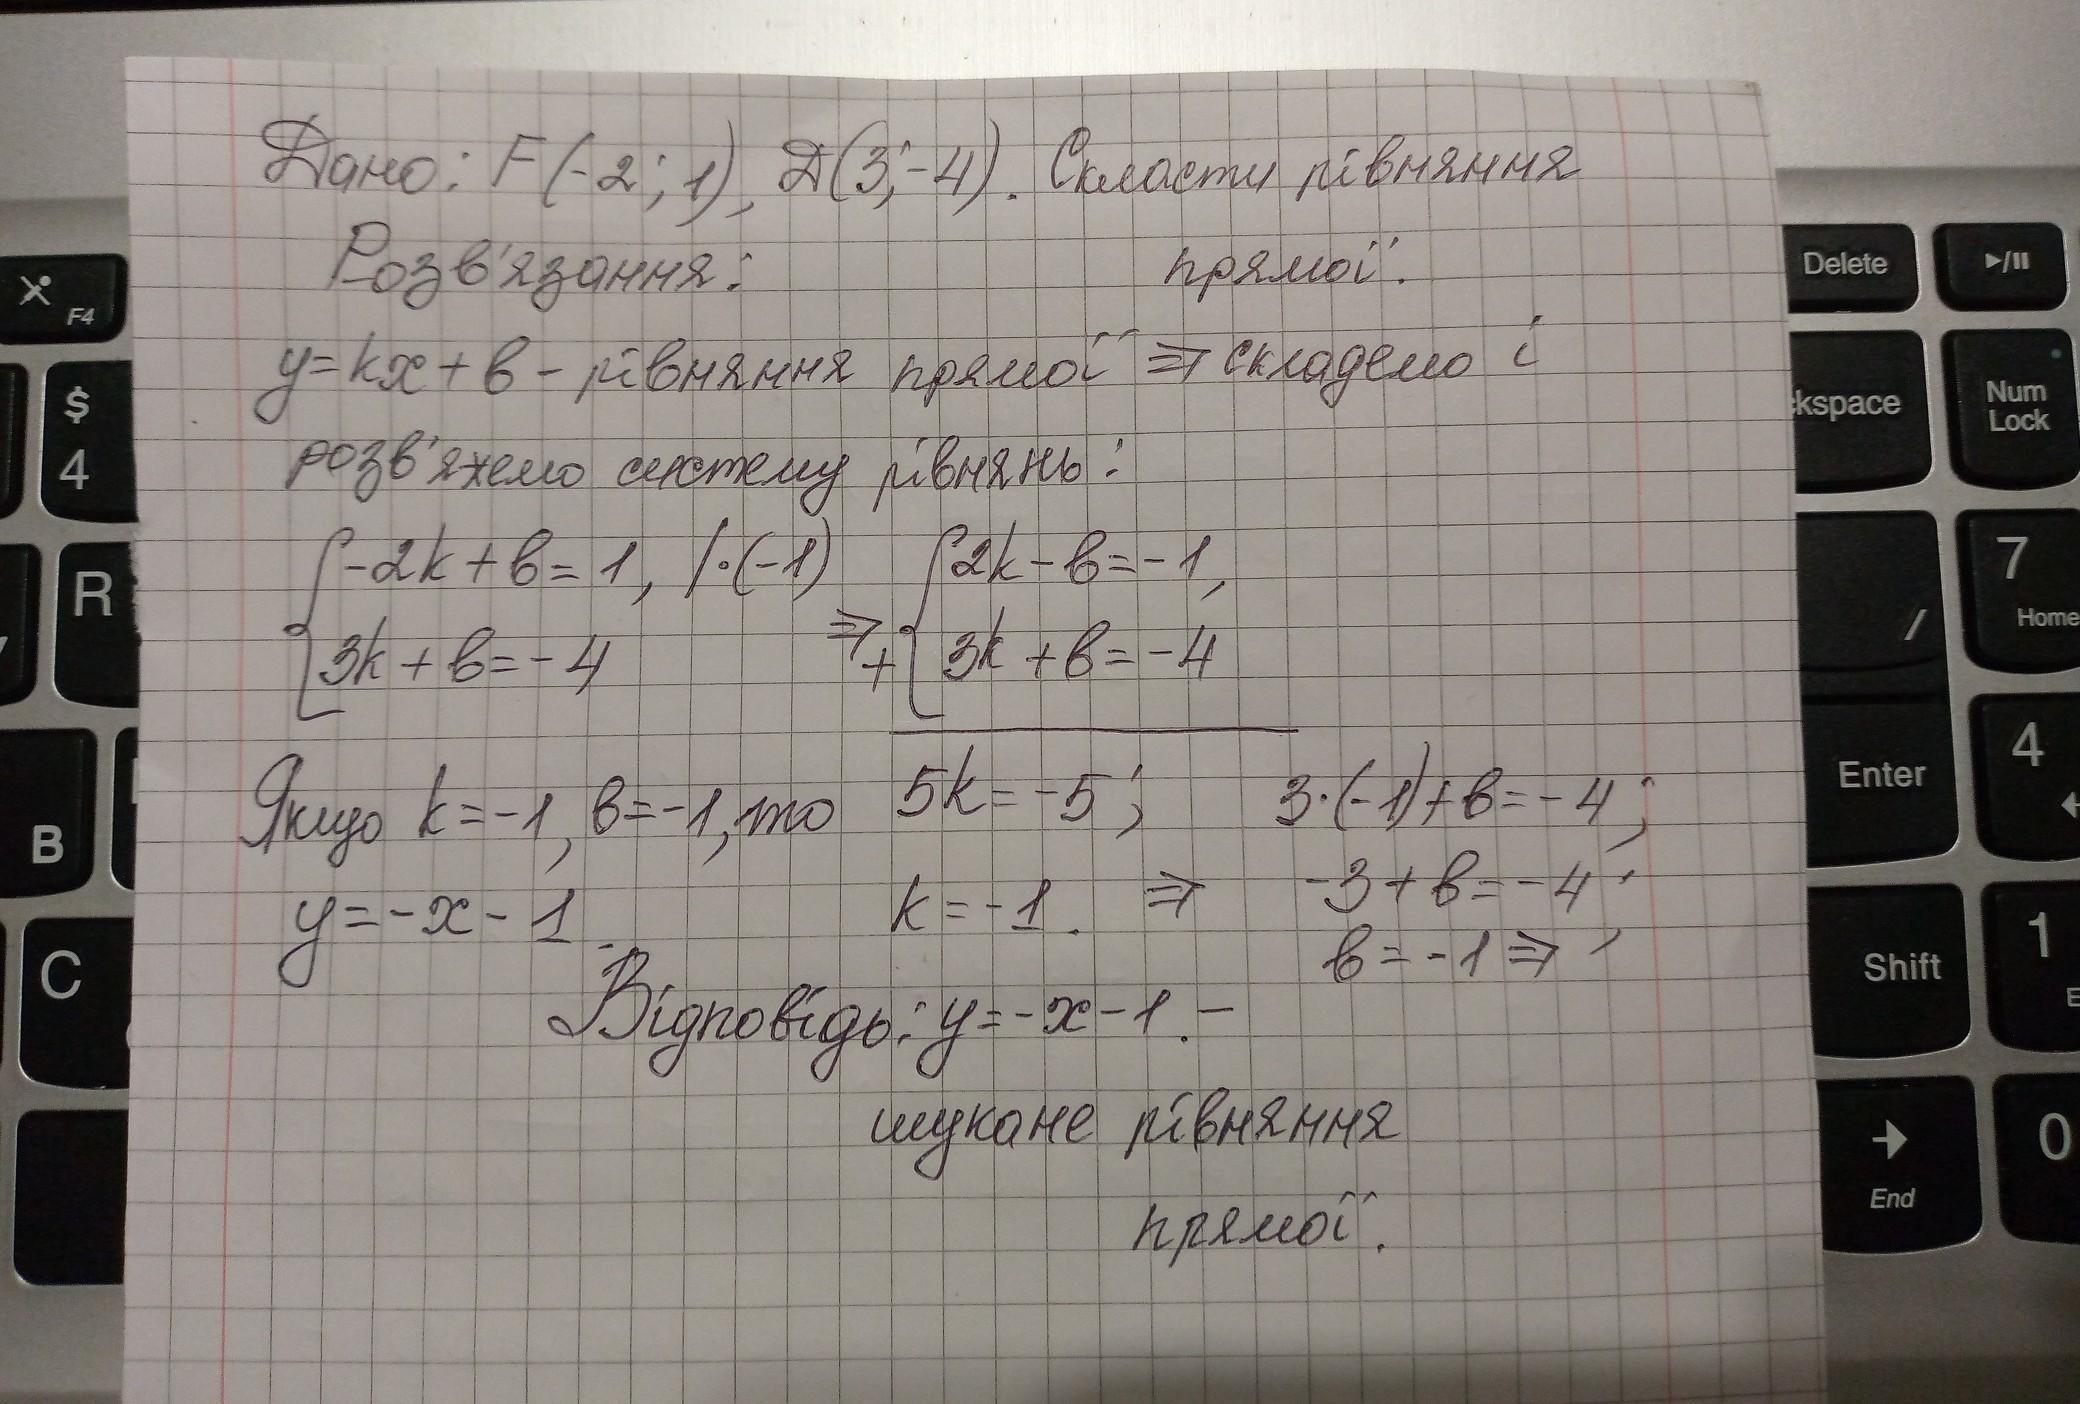 Дано: F(-2; 1), D(3; -4). Скласти рівняння
прямої.
Розв'язання:
y=kx+b - рівняння прямої ⇒ складемо і
розв'яжемо систему рівнянь:
{-2k+b=1, |·(-1)
3k+b=-4
⇒ + {2k-b=-1,
3k+b=-4
5k=-5;
k=-1. ⇒
3·(-1)+b=-4;
-3+b=-4;
b=-1 ⇒
Якщо k=-1, b=-1, то
y=-x-1.
Відповідь: y=-x-1. -
шукане рівняння
прямої.
F4
$
4
R
B
C
Delete
►/II
kspace
Num
Lock
/
7
Home
Enter
4
Shift
1
E
→
End
0